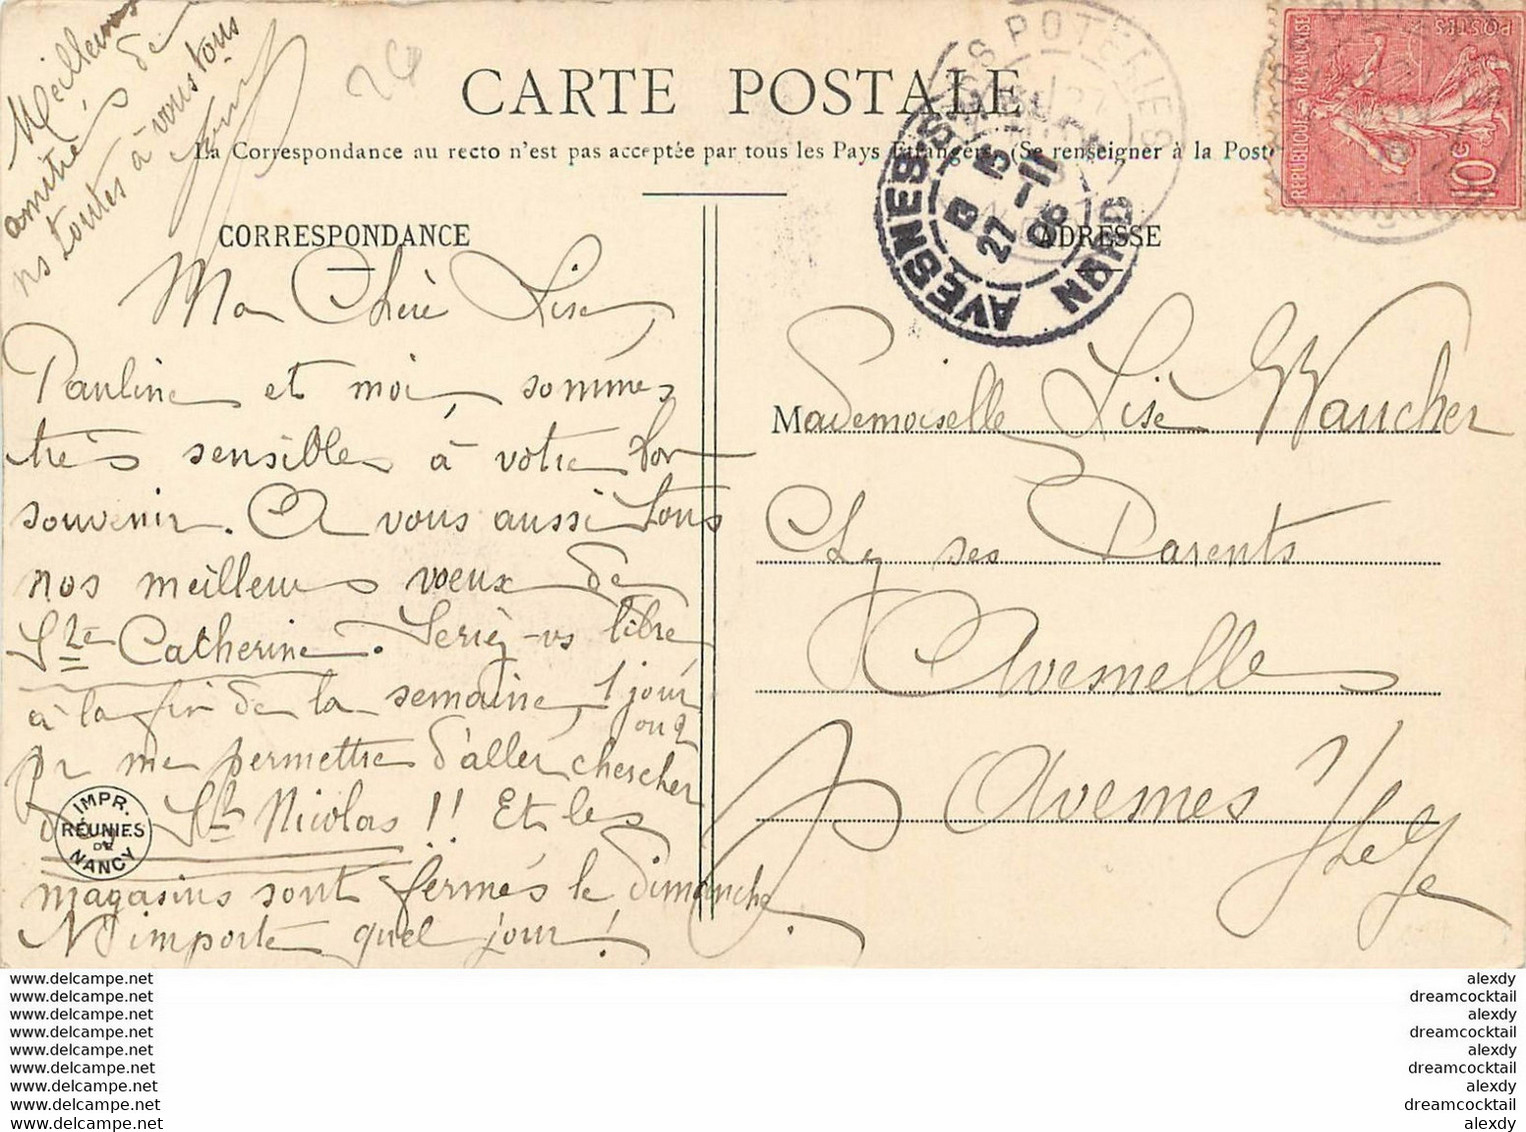 Meilleures
amitiés de
ns toutes à vous tous
CARTE POSTALE
La Correspondance au recto n'est pas acceptée par tous les Pays Étrangers. (Se renseigner à la Poste
CORRESPONDANCE
Ma Chère Lise,
Pauline et moi, sommes
très sensibles à votre bon
souvenir. A vous aussi tous
nos meilleurs vœux de
Ste Catherine. Seriez-vs libre
à la fin de la semaine, 1 jour
ou 2
pr me permettre d'aller chercher
St Nicolas !! Et les
magasins sont fermés le Dimanche.
N'importe quel jour !
IMPR.
RÉUNIES
DE
NANCY
ADRESSE
Mademoiselle Lise Waucher
Chez ses Parents
Avesnelle
Avesnes
AVESNES NORD
B 15
27-11
06
POTERIES
REPUBLIQUE FRANÇAISE
POSTES
10c
www.delcampe.net
www.delcampe.net
www.delcampe.net
www.delcampe.net
www.delcampe.net
www.delcampe.net
www.delcampe.net
www.delcampe.net
www.delcampe.net
alexdy
dreamcocktail
alexdy
dreamcocktail
alexdy
dreamcocktail
alexdy
dreamcocktail
alexdy